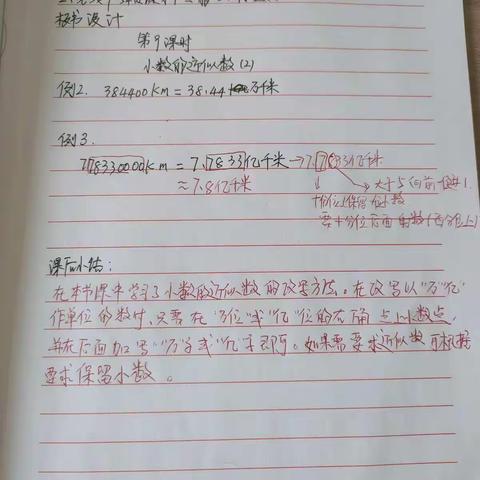 板书设计
第9课时
小数的近似数(2)
例2. 384400km = 38.44万千米
例3.
778330000km = 7.7833亿千米 → 7.7833亿千米
≈ 7.8亿千米
大于5向前一位进1.
十分位保留一位小数
要十分位后面的数(百分位上)
课后小结:
在本节课中学习了小数的近似数的改写方法。在改写以"万""亿"
作单位的数时,只需在"万位"或"亿"位的右下角点上小数点,
并在后面加写"万"字或"亿"字即可。如果需要求近似数可根据
要求保留小数。